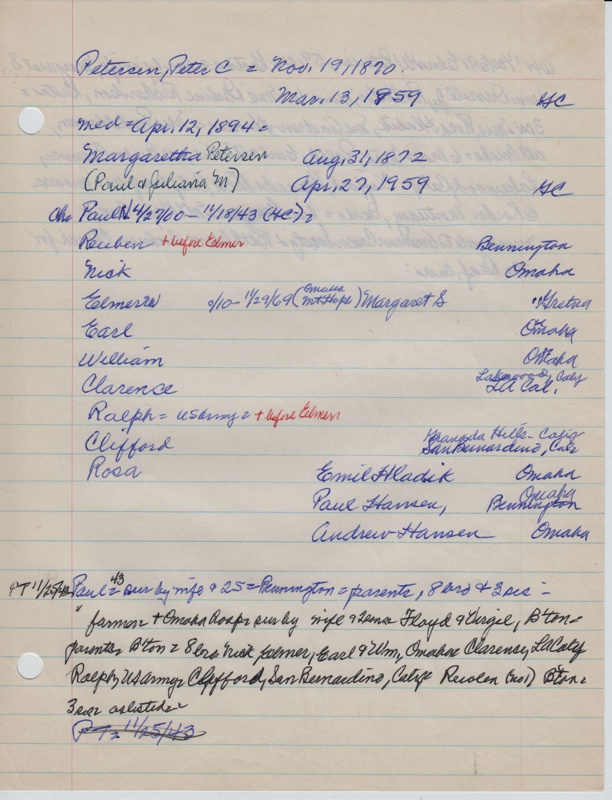 Petersen, Peter C = Nov. 19, 1870.
Mar. 13, 1959 HC
med = Apr. 12, 1894 =
Margaretha Petersen Aug. 31, 1872
(Paul & Juliana M) Apr. 27, 1959 HC
chr Paul N 4/27/00 - 11/18/43 (HC) =
Reuben + before Elmer Bennington
Nick Omaha
Elmer 0/10 - 11/29/69 (Omaha Mt Hope) Margaret S " Gretna
Earl Omaha
William Omaha
Clarence Lakewood, Calif LA Cal.
Ralph = US Army = + before Elmer
Clifford Hills - Calif San Bernardino, Calif
Rosa Emil Hladik Omaha
Paul Hansen, Omaha Bennington
Andrew Hansen Omaha
PT 11/25/43 Paul = 43 sur by wife & 2S = Bennington = parents, 8 bro & 3 sis =
" farmer + Omaha sur by wife & sons Floyd & Virgil, B'ton =
parents B'ton = 8 bro Nick, Elmer, Earl & Wm, Omaha = Clarence, LA Calif
Ralph, US Army = Clifford, San Bernardino, Calif = B'ton =
3 sis as listed =
PT = 11/25/43